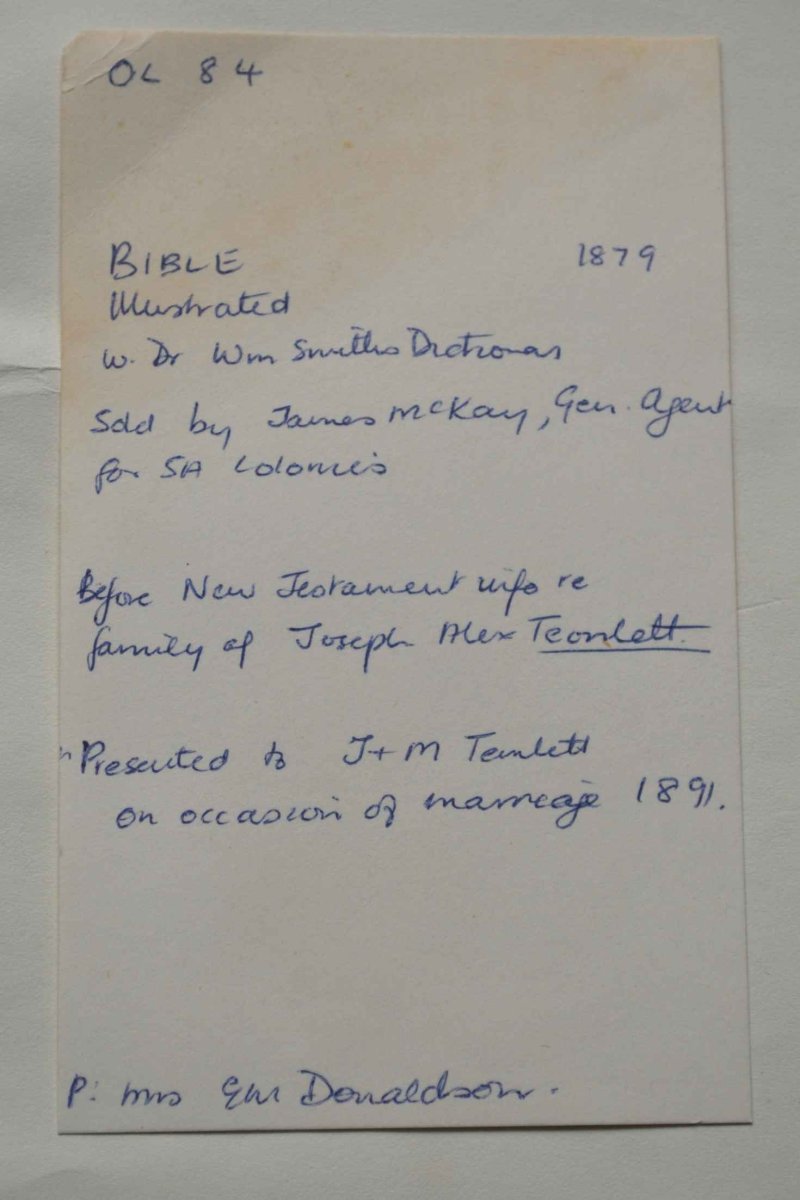 OL 84
BIBLE 1879
Illustrated
w. Dr Wm Smiths Dictionary
Sold by James McKay, Gen. Agent
for SA Colonies
Before New Testament info re
family of Joseph Alex
Presented to J+M
on occasion of marriage 1891.
P: Mrs Donaldson.